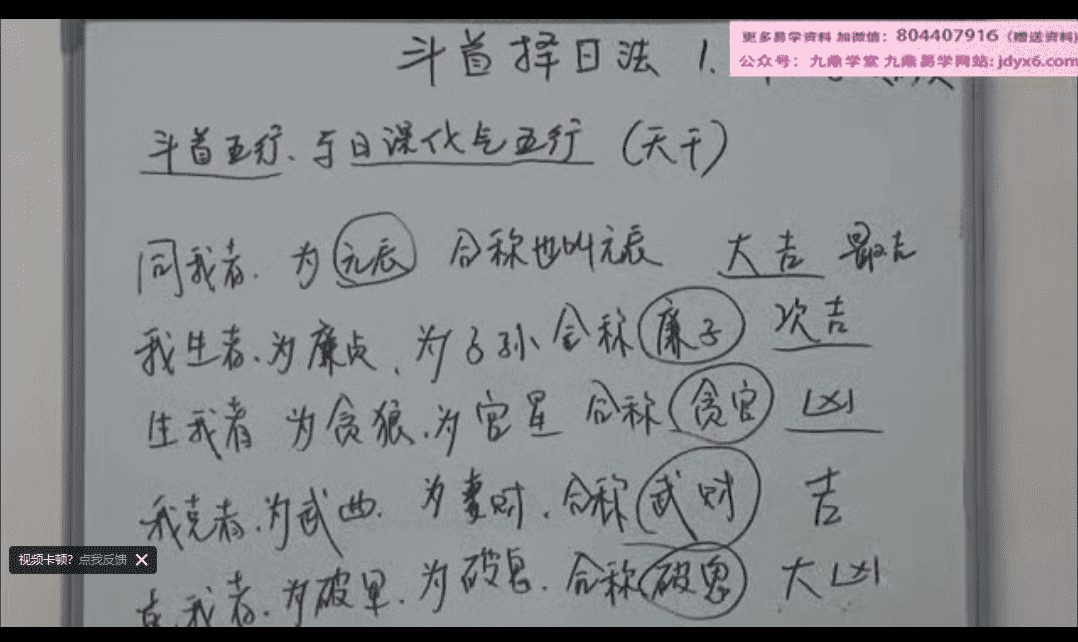 更多易学资料 加微信：804407916（赠送资料）
公众号：九鼎学堂 九鼎易学网站：jdyx6.com
斗首择日法 1.
斗首五行、与日课化气五行（天干）
同我者. 为元辰 合称也叫元辰 大吉 最吉
我生者、为廉贞、为子孙 合称廉子 次吉
生我者 为贪狼、为官星 合称贪官 凶
我克者、为武曲、为妻财、合称武财 吉
视频卡顿？点我反馈
克我者、为破军、为破鬼、合称破鬼 大凶